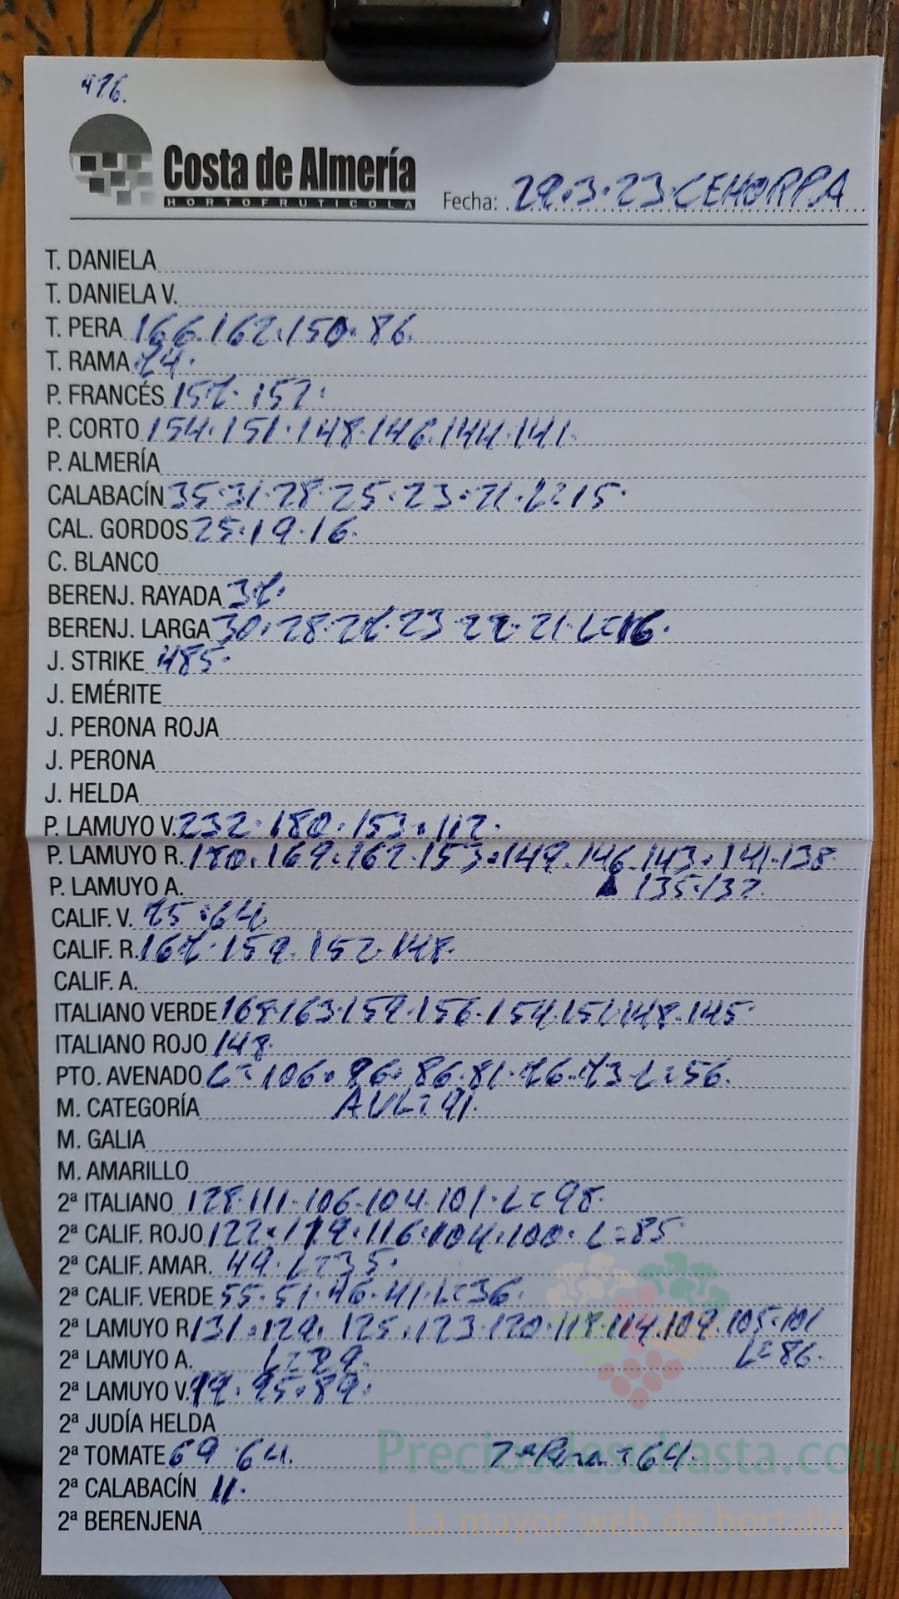 476.
Costa de Almería
HORTOFRUTICOLA
Fecha: 29.3.23.CEHORPPA
T. DANIELA
T. DANIELA V.
T. PERA 166.162.150.86.
T. RAMA 74.
P. FRANCÉS 157.152.
P. CORTO 154.151.148.146.144.141.
P. ALMERÍA
CALABACÍN 35.31.28.25.23.21.L=15.
CAL. GORDOS 25.19.16.
C. BLANCO
BERENJ. RAYADA 37.
BERENJ. LARGA 30.28.27.23.22.21.L=16.
J. STRIKE 485.
J. EMÉRITE
J. PERONA ROJA
J. PERONA
J. HELDA
P. LAMUYO V. 232.180.153.112.
P. LAMUYO R. 180.169.162.153.149.146.143.141.138
P. LAMUYO A. 135.132.
CALIF. V. 75.64
CALIF. R. 167.159.152.148.
CALIF. A.
ITALIANO VERDE 168.163.159.156.154.151.148.145.
ITALIANO ROJO 148.
PTO. AVENADO L=106. 86.81.76.73.L=56.
M. CATEGORÍA AVL=91.
M. GALIA
M. AMARILLO
2ª ITALIANO 128.111.106.104.101.L=98.
2ª CALIF. ROJO 122.119.116.104.100.L=85.
2ª CALIF. AMAR. 49.L=35.
2ª CALIF. VERDE 55.51.46.41.L=36.
2ª LAMUYO R 131.129.125.123.120.118.114.109.105.101
2ª LAMUYO A. L=79. L=86.
2ª LAMUYO V. 95.89.
2ª JUDÍA HELDA
2ª TOMATE 69.64. 2ª Pera=64.
Preciosdesubasta.com
2ª CALABACÍN 11.
La mayor web de hortalizas
2ª BERENJENA